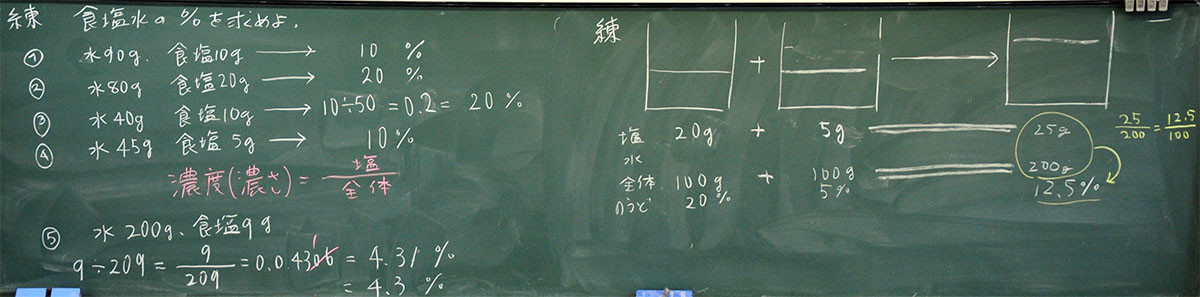 練 食塩水の%を求めよ.
① 水90g. 食塩10g → 10 %
② 水80g 食塩20g → 20 %
③ 水40g 食塩10g → 10÷50 = 0.2 = 20 %
④ 水45g 食塩 5g → 10%
濃度(濃さ) = 塩/全体
⑤ 水 200g、食塩9g
9÷209 = 9/209 = 0.04306 = 4.31 %
1
= 4.3 %
練
+ →
塩 20g + 5g 25g 25/200 = 12.5/100
水
全体 100g + 100g 200g
のうど 20% 5% 12.5%